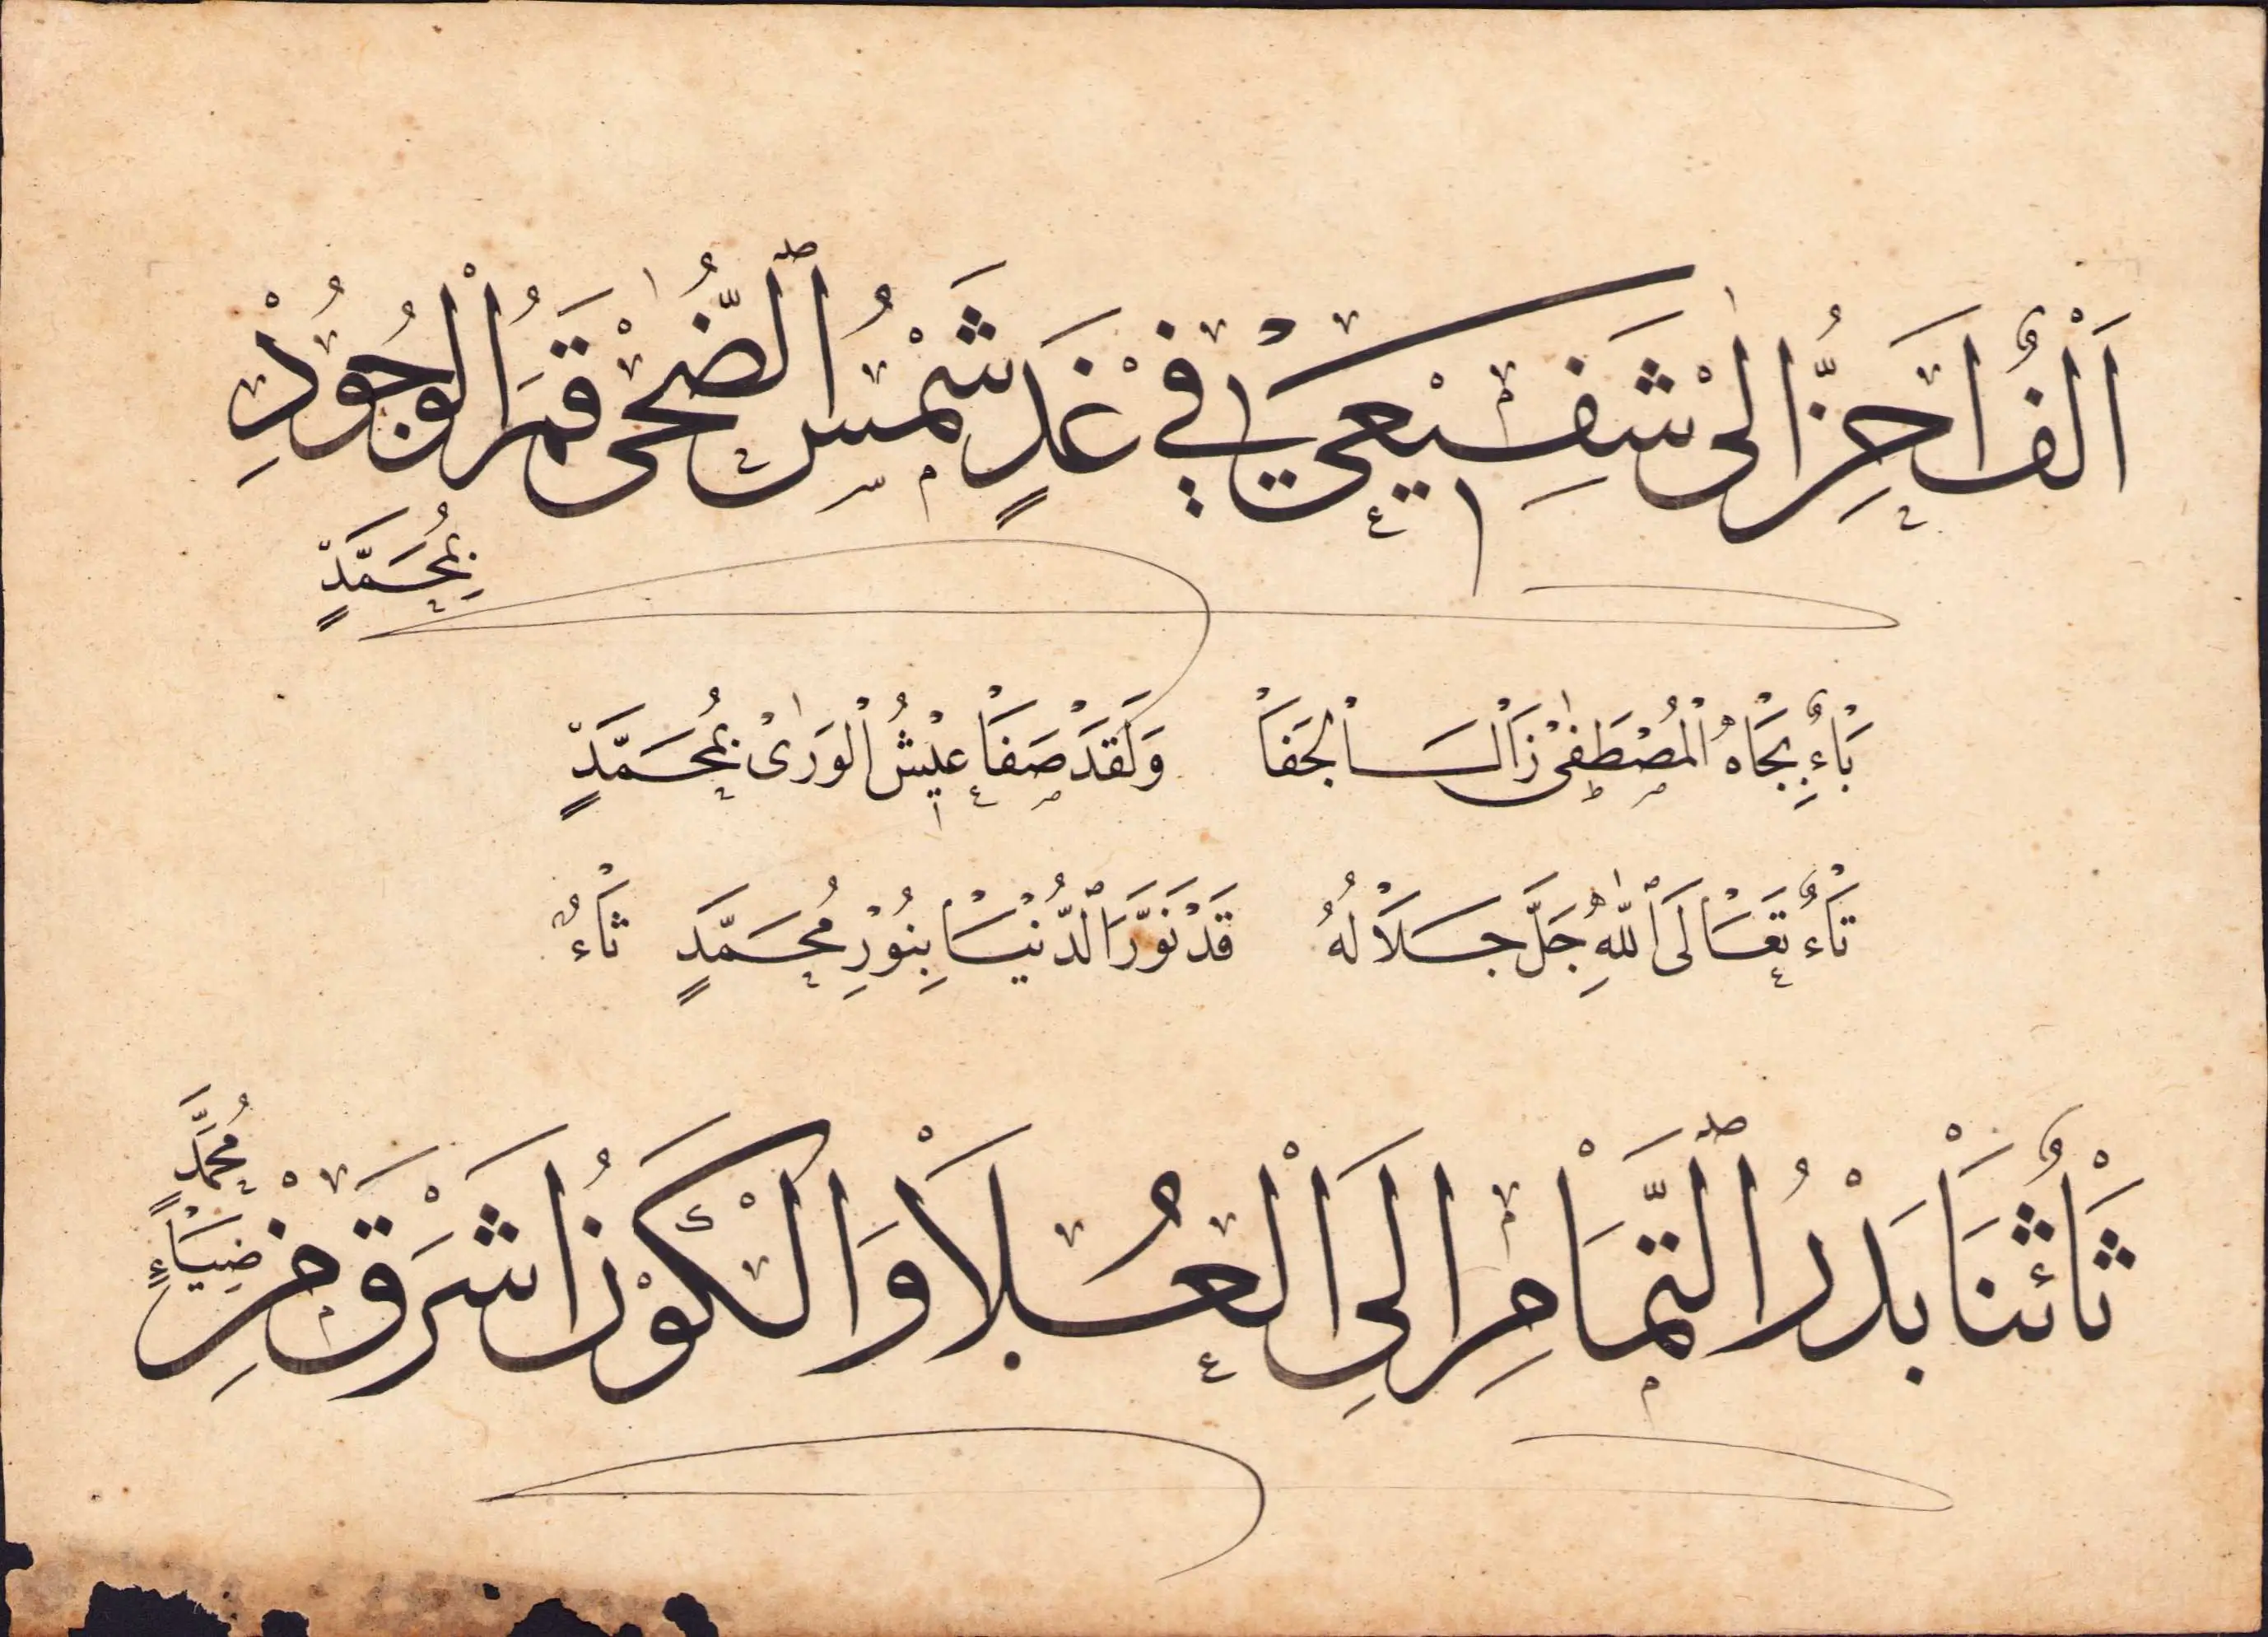 اَلْفٌ اَحِنُّ اِلىٰ شَفِيْعِيْ فِيْ غَدٍ شَمْسُ ٱلضُّحىٰ قَمَرُ الْوُجُوْدِ
بِمُحَمَّدٍ
بَاءٌ بِجَاهِ الْمُصْطَفىٰ زَالَ الْجَفَا وَلَقَدْ صَفَا عَيْشُ الْوَرىٰ بِمُحَمَّدٍ
تَاءٌ تَعَالَى ٱللّٰهُ جَلَّ جَلَالُهُ قَدْ نَوَّرَ ٱلدُّنْيَا بِنُوْرِ مُحَمَّدٍ ثَاءٌ
ثَاءٌ ثَنَا بَدْرُ ٱلتَّمَامِ اِلَى الْعُلَا وَالْكَوْنُ اَشْرَقَ مِنْ
ضِيَاءِ مُحَمَّدٍ